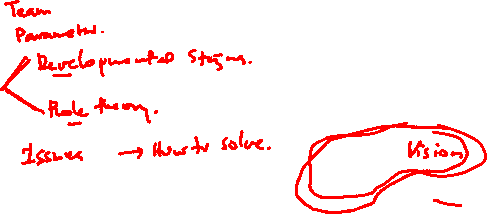 Team
Parameter.
Developmental Stages.
Role theory.
Issues → How to solve.
Vision